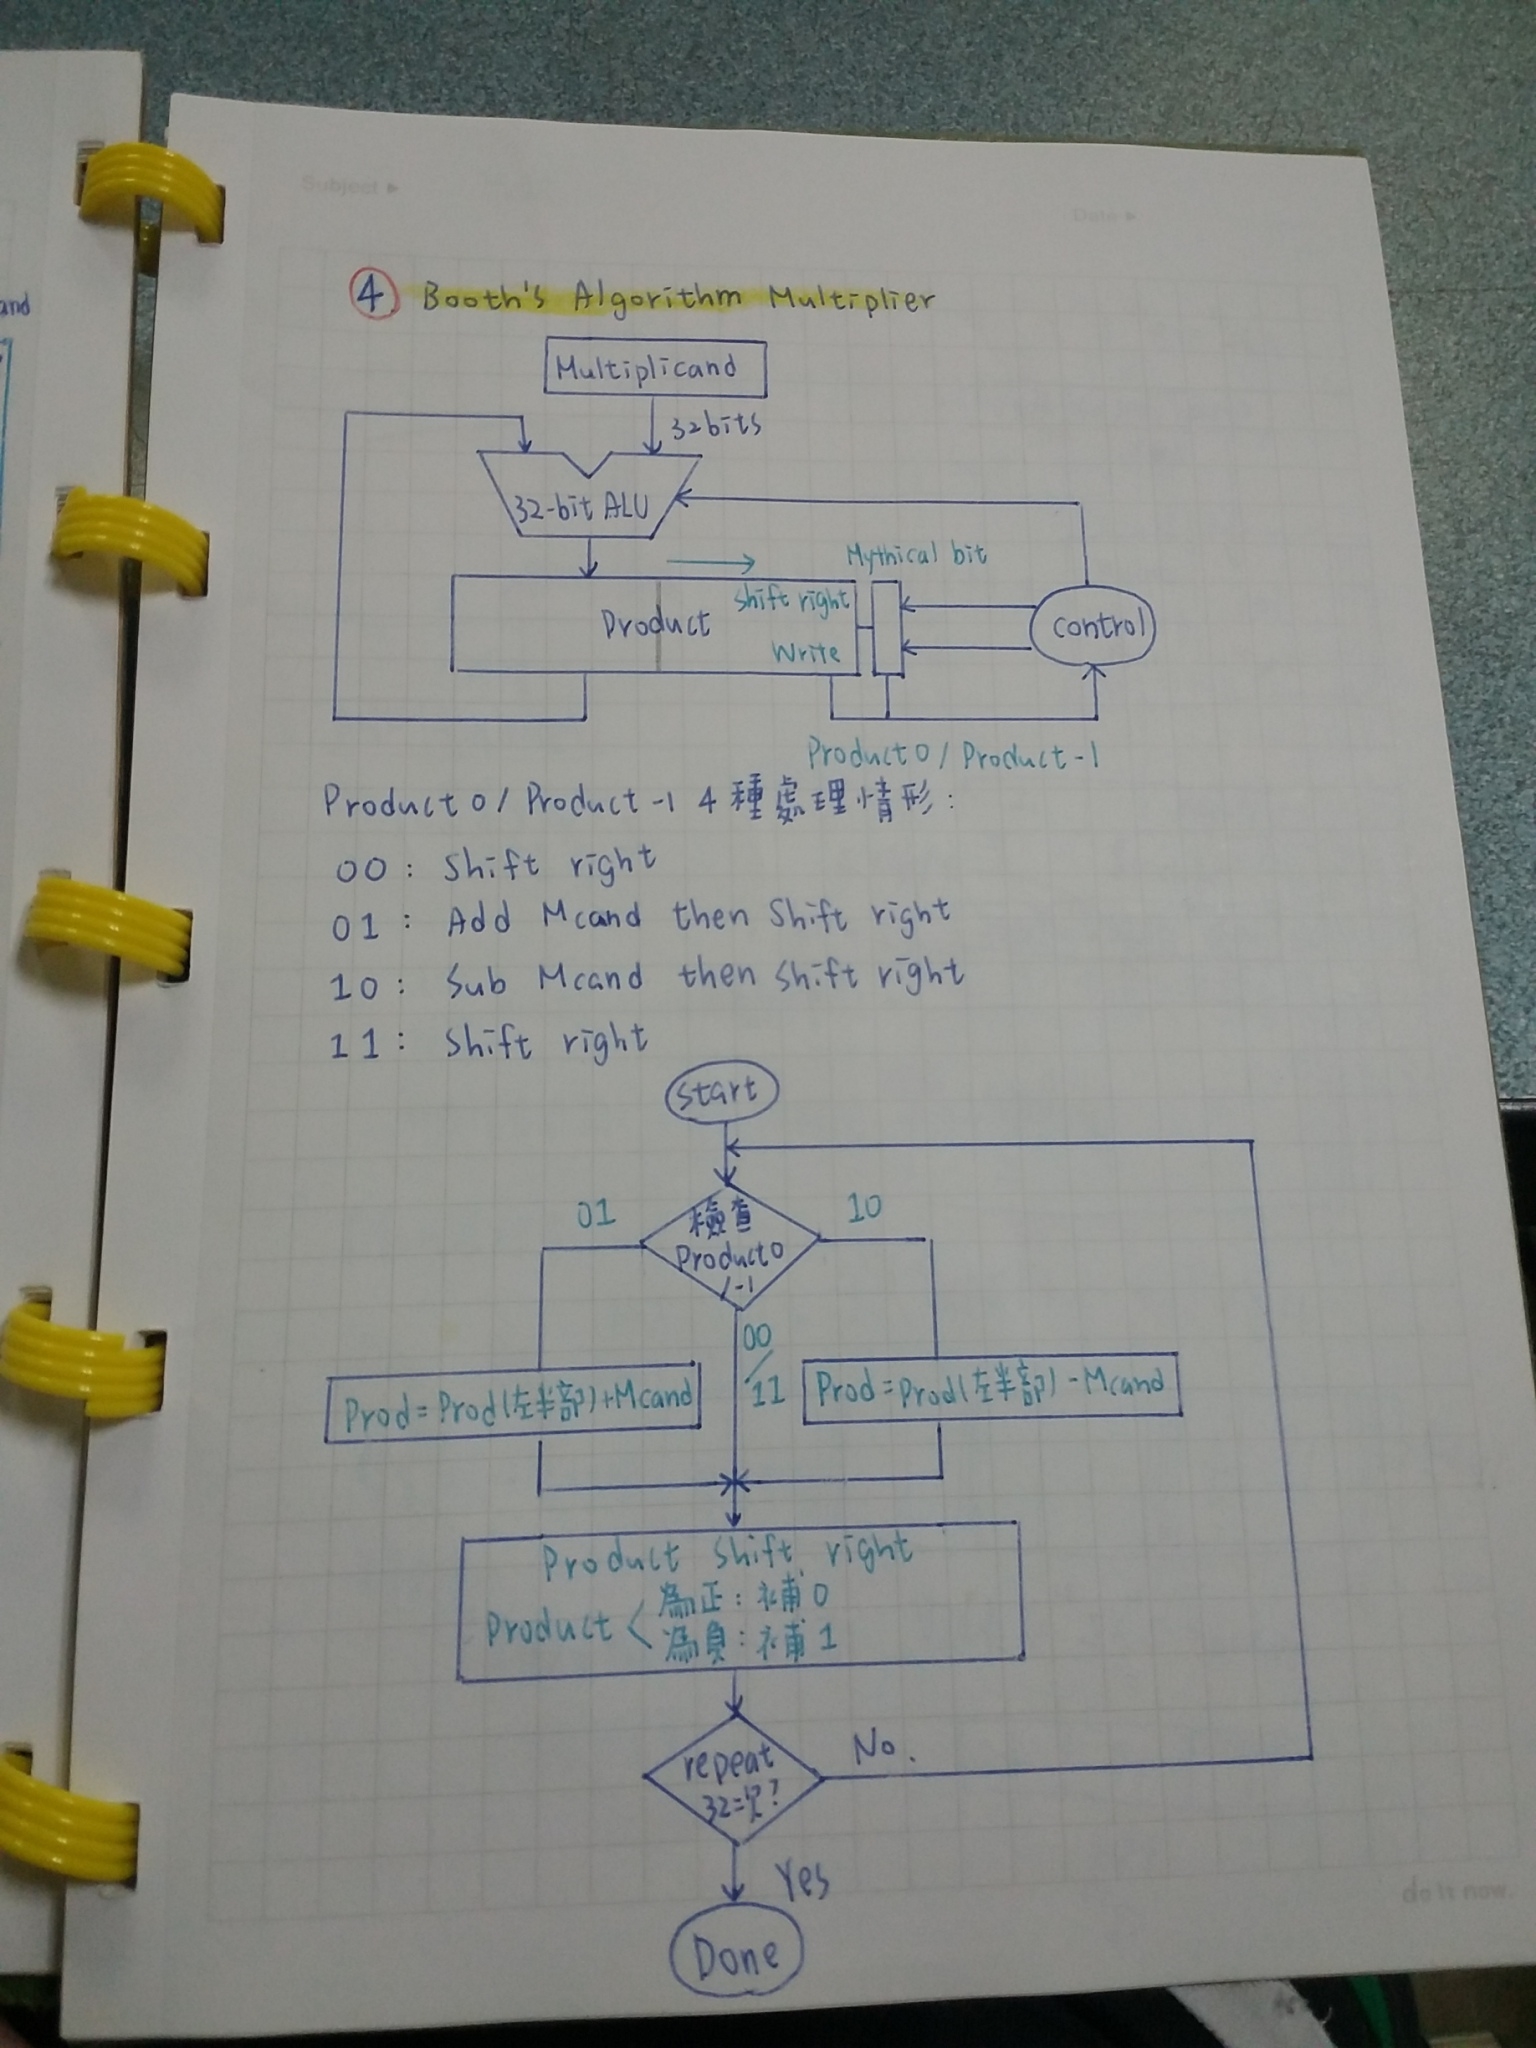 and
Subject
Date
④ Booth's Algorithm Multiplier
Multiplicand
32bits
32-bit ALU
Mythical bit
Shift right
Product
control
Write
Product0/Product-1
Product0/Product-1 4種處理情形:
00: Shift right
01: Add Mcand then Shift right
10: Sub Mcand then Shift right
11: Shift right
Start
01
檢查
Product0
/-1
10
00
/
11
Prod=Prod(左半部)+Mcand
Prod=Prod(左半部)-Mcand
Product Shift right
Product
為正:補0
為負:補1
repeat
32次?
No.
Yes
Done
do it now.